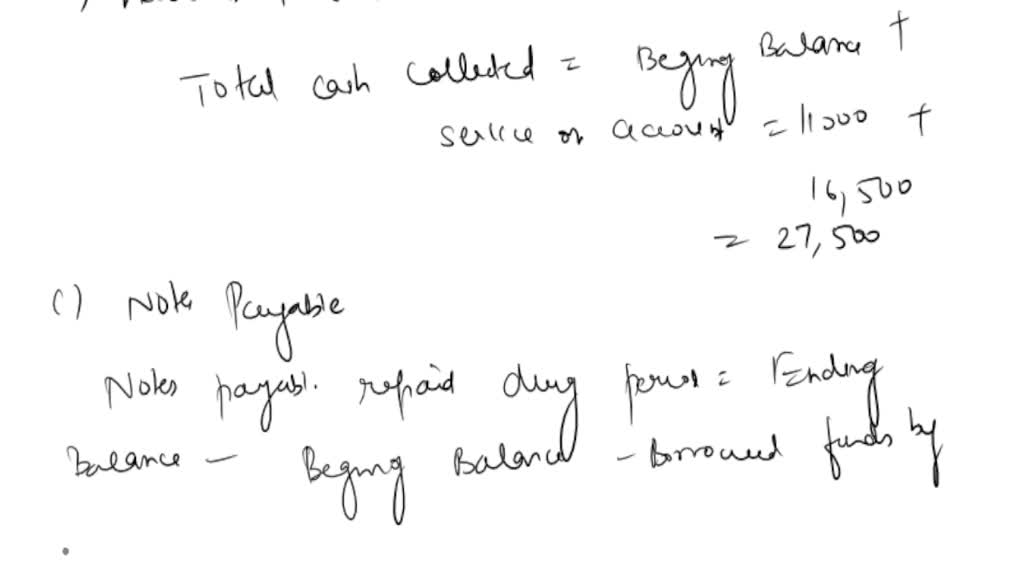 Total cash collected = Beging Balance +
service on account = 11000 +
16,500
= 27,500
c) Note Payable
Notes payabl. repaid durg period = Ending
Balance - Beging Balance - Borrowed funds by